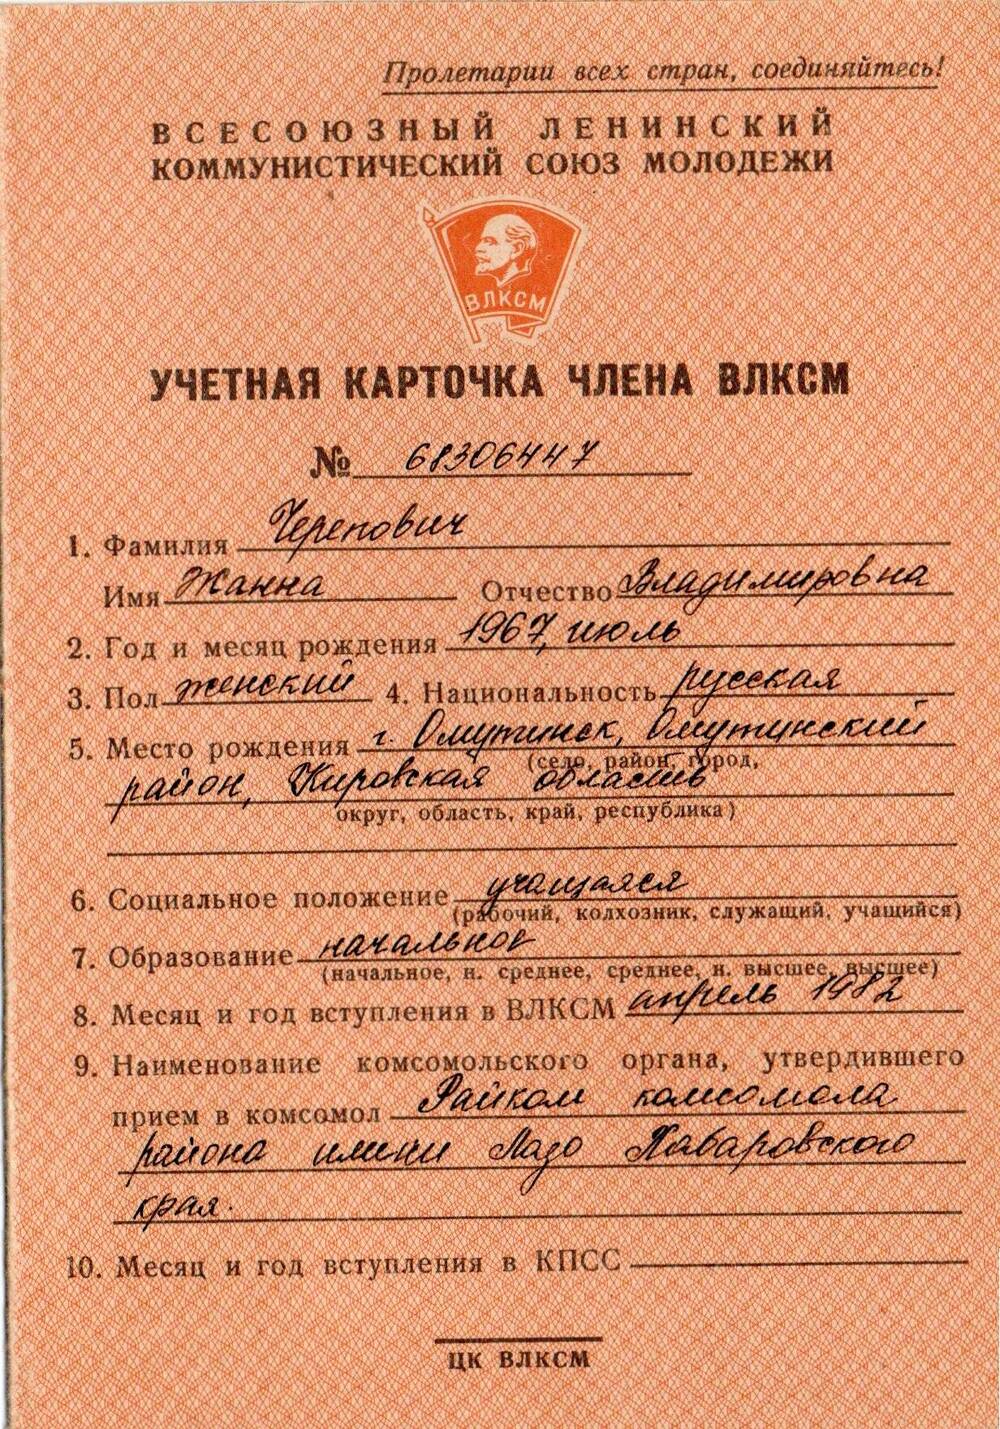 Пролетарии всех стран, соединяйтесь!
ВСЕСОЮЗНЫЙ ЛЕНИНСКИЙ
КОММУНИСТИЧЕСКИЙ СОЮЗ МОЛОДЕЖИ
ВЛКСМ
УЧЕТНАЯ КАРТОЧКА ЧЛЕНА ВЛКСМ
№ 68306447
1. Фамилия Черепович
Имя Жанна Отчество Владимировна
2. Год и месяц рождения 1967, июль
3. Пол женский 4. Национальность русская
5. Место рождения г. Омутинск, Омутунский
(село, район, город,
район, Кировская область
округ, область, край, республика)
6. Социальное положение учащаяся
(рабочий, колхозник, служащий, учащийся)
7. Образование начальное
(начальное, н. среднее, среднее, н. высшее, высшее)
8. Месяц и год вступления в ВЛКСМ апрель 1982
9. Наименование комсомольского органа, утвердившего
прием в комсомол Райком комсомола
района имени Лазо Хабаровского
края.
10. Месяц и год вступления в КПСС
ЦК ВЛКСМ